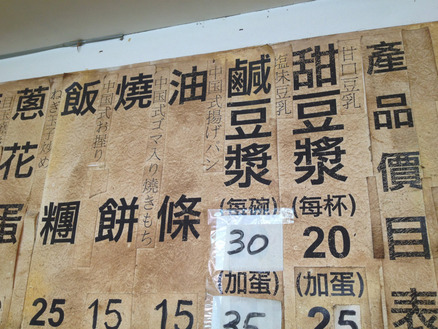 產品價目表
甘口豆乳
甜豆漿
(每杯)
20
(加蛋)
25
塩味豆乳
鹹豆漿
(每碗)
30
(加蛋)
35
中国式揚げパン
油條
15
中国式ゴマ入り焼きもち
燒餅
15
中国式お握り
飯糰
25
蔥花蛋